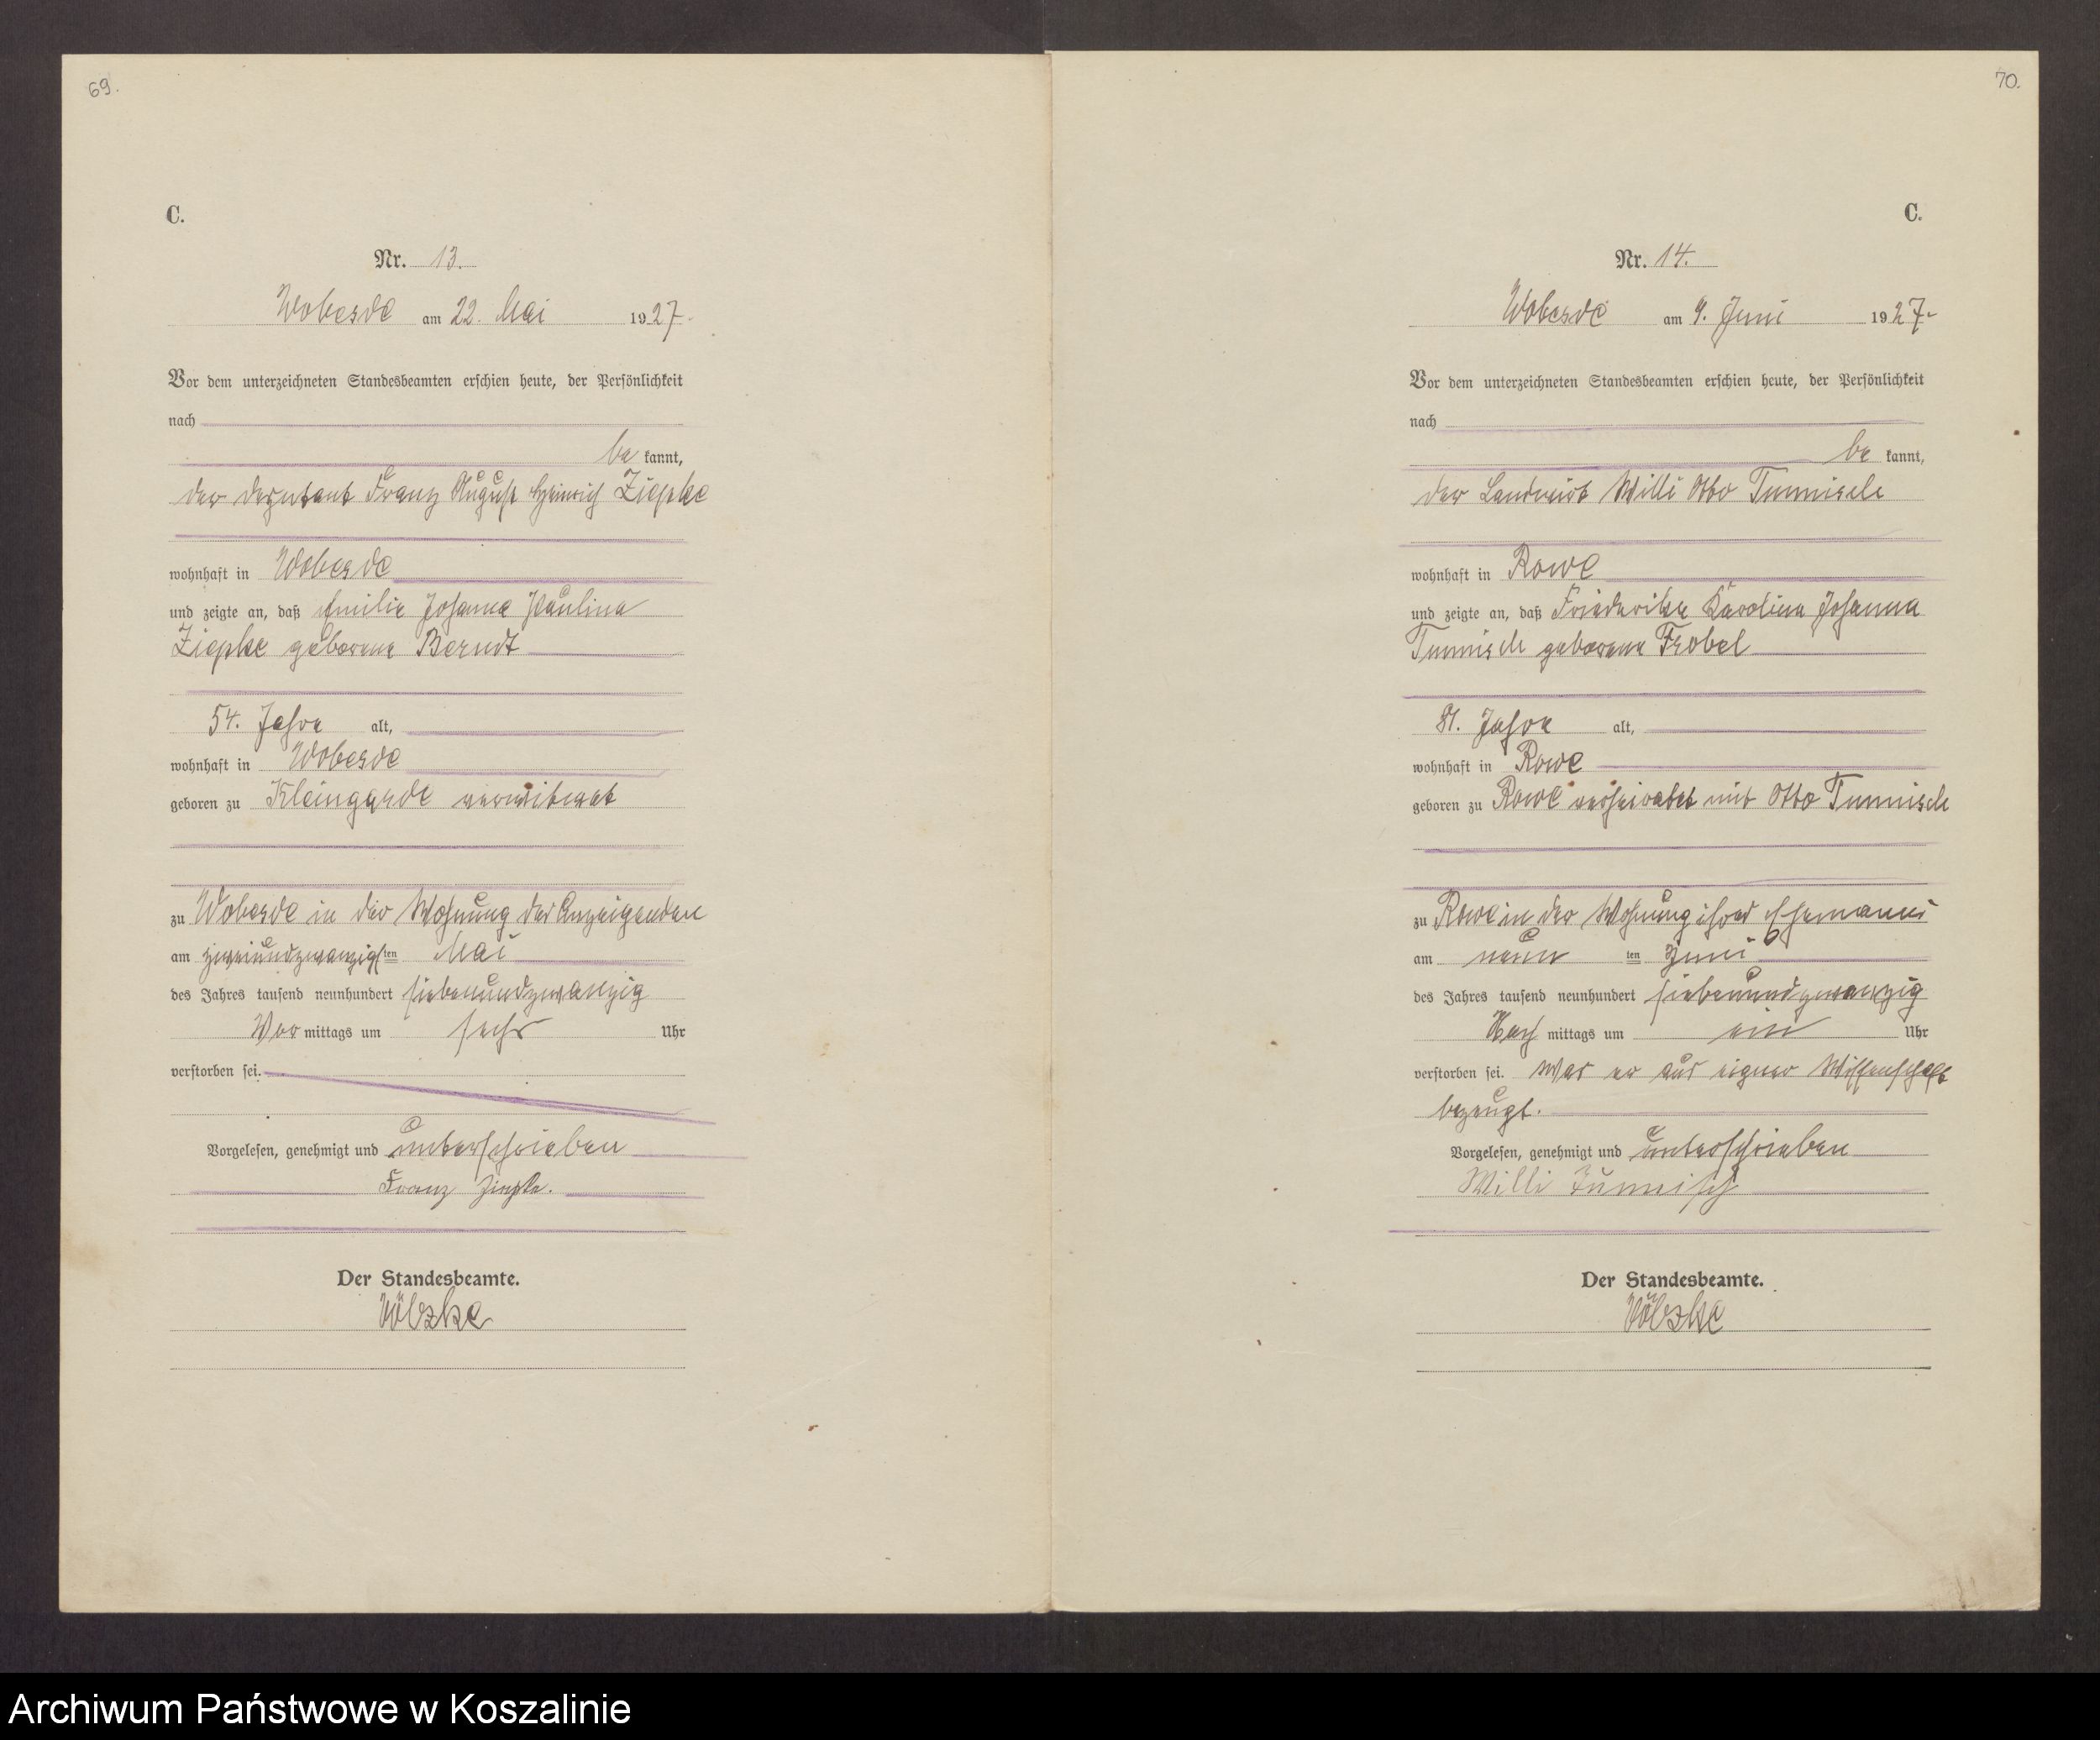 69.
C.
Nr. 13.
Wobesde am 22. Mai 1927.
Vor dem unterzeichneten Standesbeamten erschien heute, der Persönlichkeit
nach
be kannt,
der Deputant Franz August Heinrich Ziepke
wohnhaft in Wobesde
und zeigte an, daß Emilie Johanna Pauline
Ziepke geborene Berndt
54. Jahre alt,
wohnhaft in Wobesde
geboren zu Kleingarde verwitwet
zu Wobesde in der Wohnung des Anzeigenden
am zweiundzwanzigsten Mai
des Jahres tausend neunhundert siebenundzwanzig
Vor mittags um sechs Uhr
verstorben sei.
Vorgelesen, genehmigt und unterschrieben
Franz Ziepke.
Der Standesbeamte.
Völzke
70.
C.
Nr. 14.
Wobesde am 9. Juni 1927.
Vor dem unterzeichneten Standesbeamten erschien heute, der Persönlichkeit
nach
be kannt,
der Landwirt Willi Otto Tummisch
wohnhaft in Rowe
und zeigte an, daß Friederike Karoline Johanna
Tummisch geborene Frobel
Jahre alt,
wohnhaft in Rowe
geboren zu Rowe verheiratet mit Otto Tummisch
zu Rowe in der Wohnung ihres Ehemanns
am neun ten Juni
des Jahres tausend neunhundert siebenundzwanzig
Nach mittags um ein Uhr
verstorben sei. was er aus eigner Wissenschaft
bezeugt.
Vorgelesen, genehmigt und unterschrieben
Willi Tummisch
Der Standesbeamte.
Völzke
Archiwum Państwowe w Koszalinie